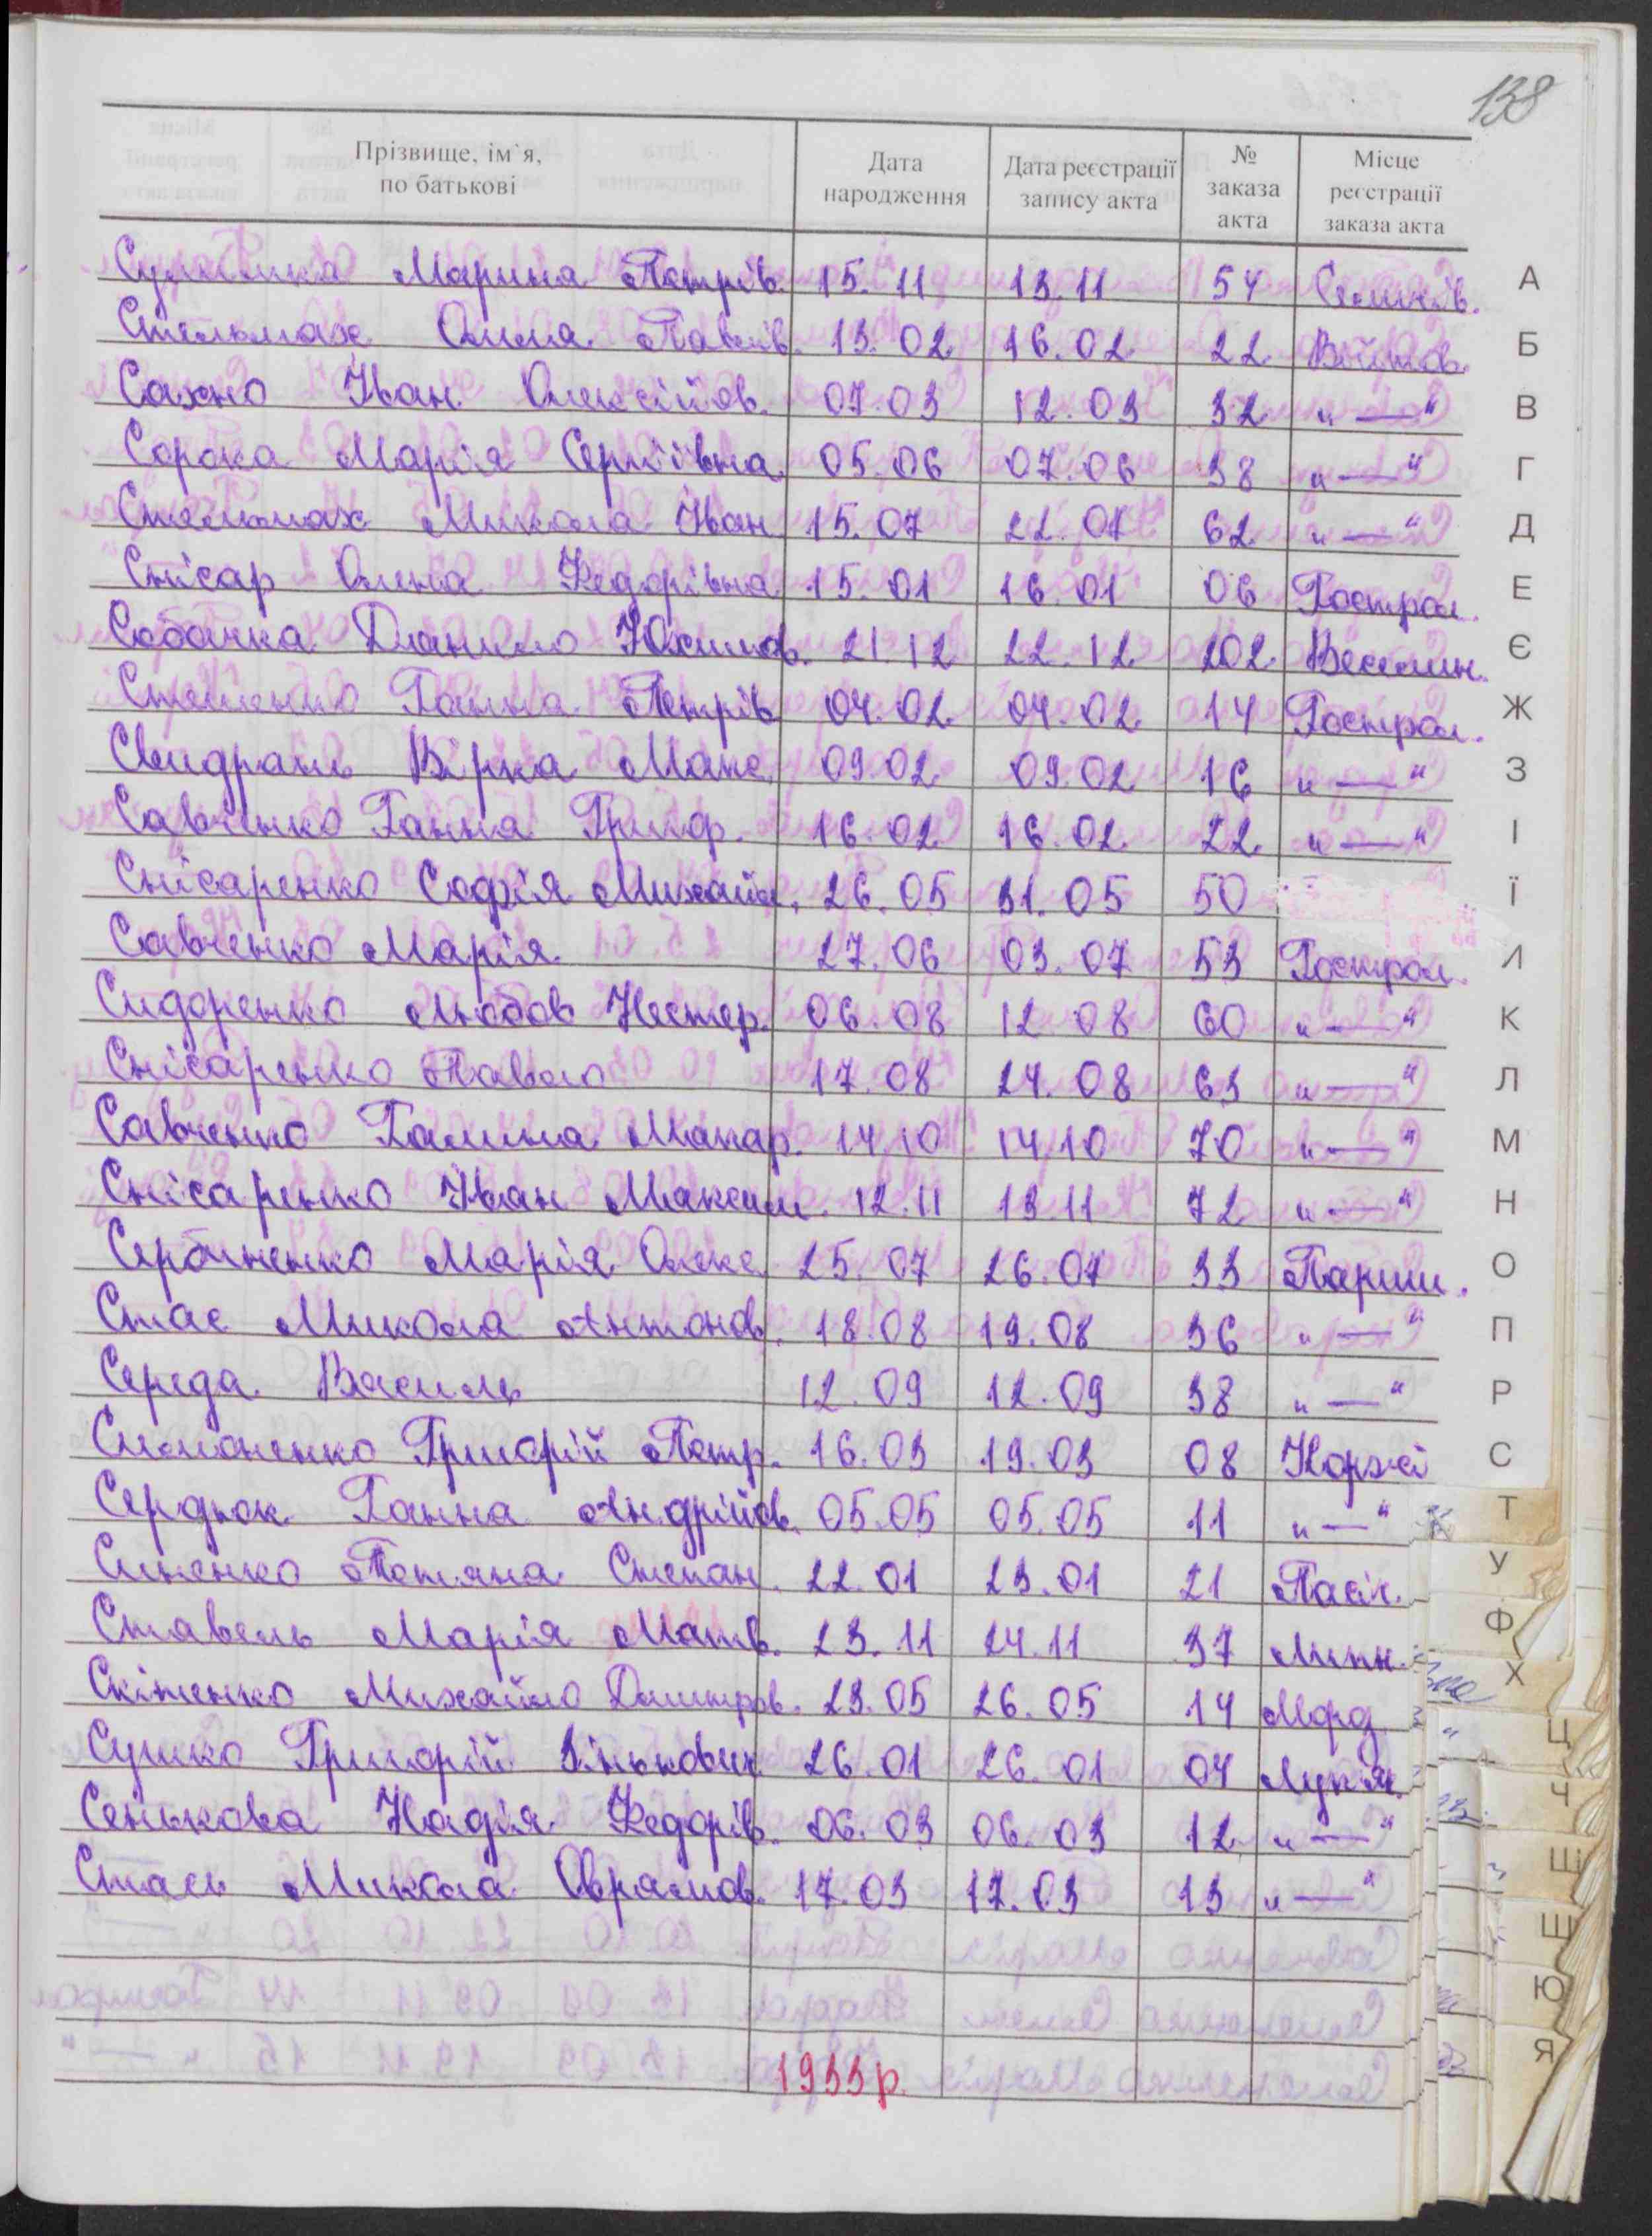 138
Прізвище, ім`я, по батькові Дата народження Дата реєстрації запису акта № заказа акта Місце реєстрації заказа акта
Марина Петрів. 15.11 13.11 54 Семенів.
Стельмах Олена Павлів. 13.02 16.02 22 Війтов.
Сахно Іван Олексійов. 07.03 12.03 32 "—"
Сорока Марія Сергіївна 05.06 07.06 38 "—"
Стельмах Микола Іван 15.07 22.07 62 "—"
Снісар Олена Федорівна 15.01 16.01 06 Гострол.
Собачка Данило Юхимов. 21.12 22.12 202 Веселин.
Стеценко Ганна Петрів 04.02 04.02 14 Гострол.
Свидрань Вірка Макс. 09.02 09.02 16 "—"
Савченко Ганна Григор. 16.02 16.02 22 "—"
Снісаренко Софія Михайл. 26.05 31.05 50
Савченко Марія 27.06 03.07 53 Гострол.
Сидоренко Любов Нестер. 06.08 12.08 60 "—"
Снісаренко Павло 17.08 24.08 63 "—"
Савченко Галина Макар. 14.10 14.10 70 "—"
Снісаренко Іван Максим. 12.11 13.11 72 "—"
Сербиненко Марія Олекс. 25.07 26.07 33 Парпи.
Стас Микола Антонов. 18.08 19.08 36 "—"
Середа Василь 12.09 12.09 38 "—"
Симоненко Григорій Петр. 16.03 19.03 08 Коржі
Сердюк Ганна Андрійов. 05.05 05.05 11 "—"
Синенко Тетяна Степан. 22.01 23.01 21 Пасіч.
Ставень Марія Матв. 23.11 24.11 37 Липн.
Скітенко Михайло Дмитров. 23.05 26.05 14 Морд.
Сушко Григорій Зінькович 26.01 26.01 04 Лук'ян.
Сенькова Надія Федорів. 06.03 06.03 12 "—"
Стась Микола Оврамов. 17.03 17.03 13 "—"
1933р.
А
Б
В
Г
Д
Е
Є
Ж
З
І
Ї
Й
К
Л
М
Н
О
П
Р
С
Т
У
Ф
Х
Ц
Ч
Ш
Щ
Ю
Я